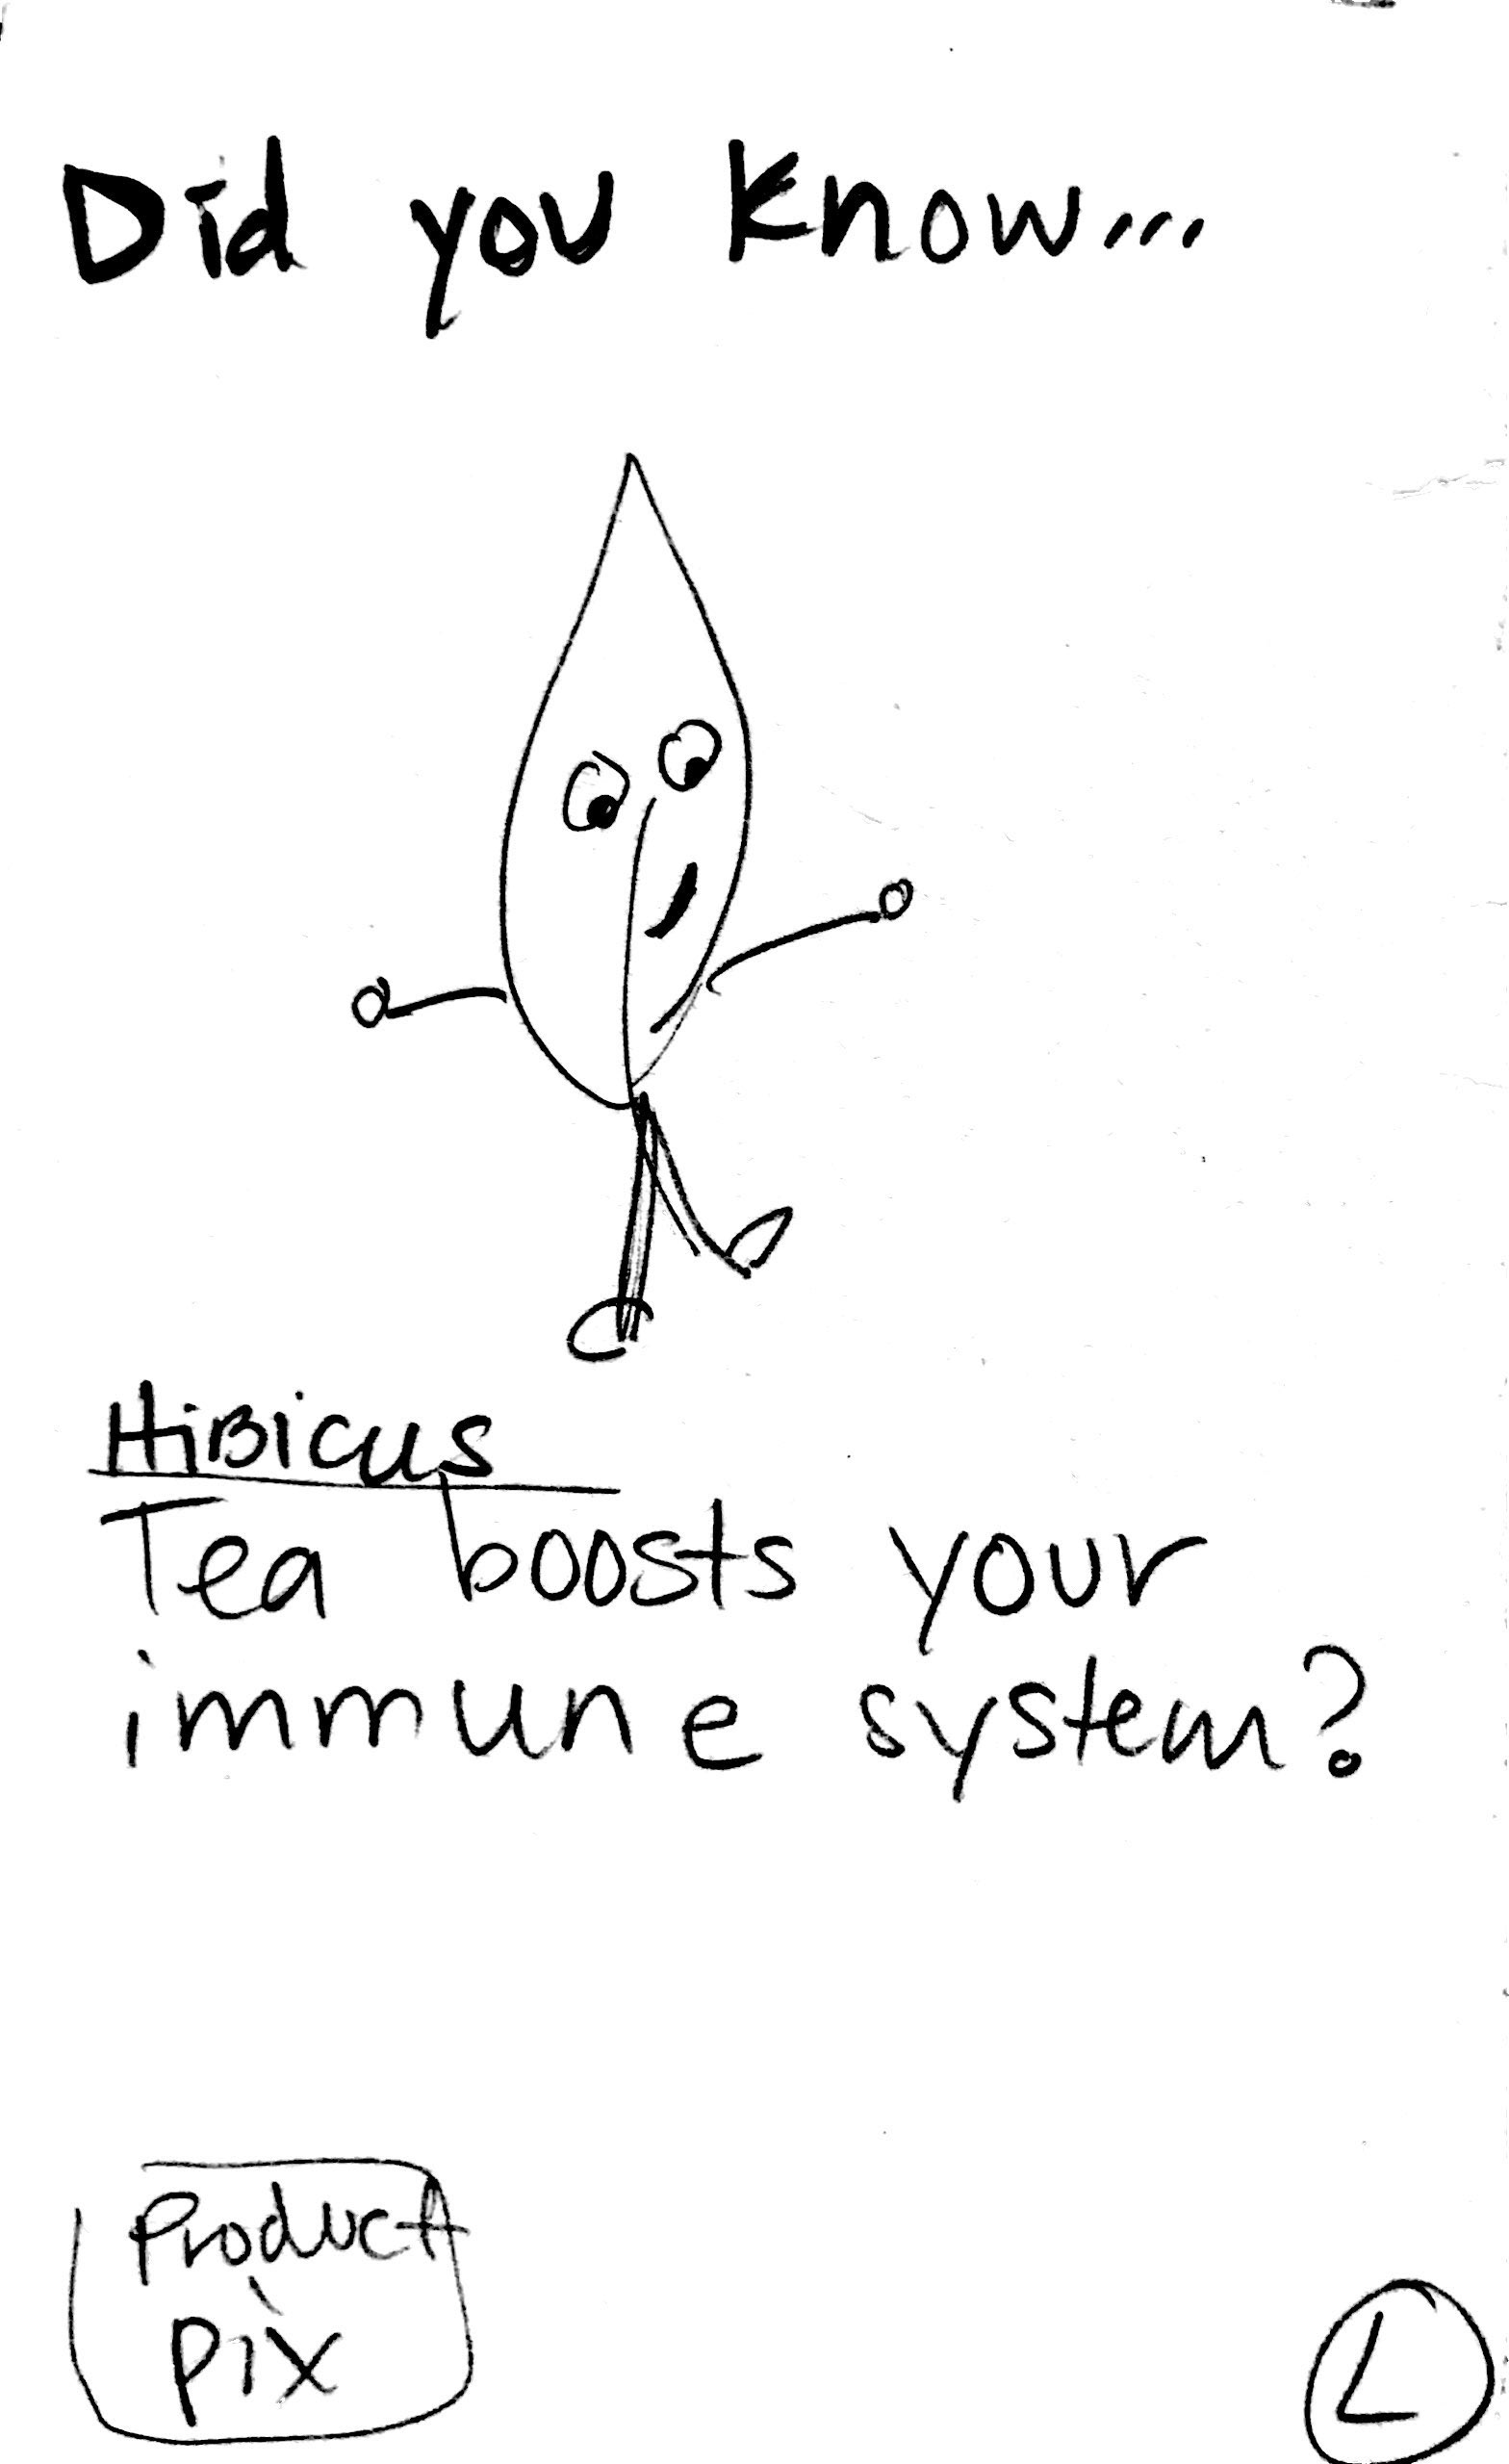 Did you know...
HiBicus
Tea boosts your
immune system?
Product
pix
L